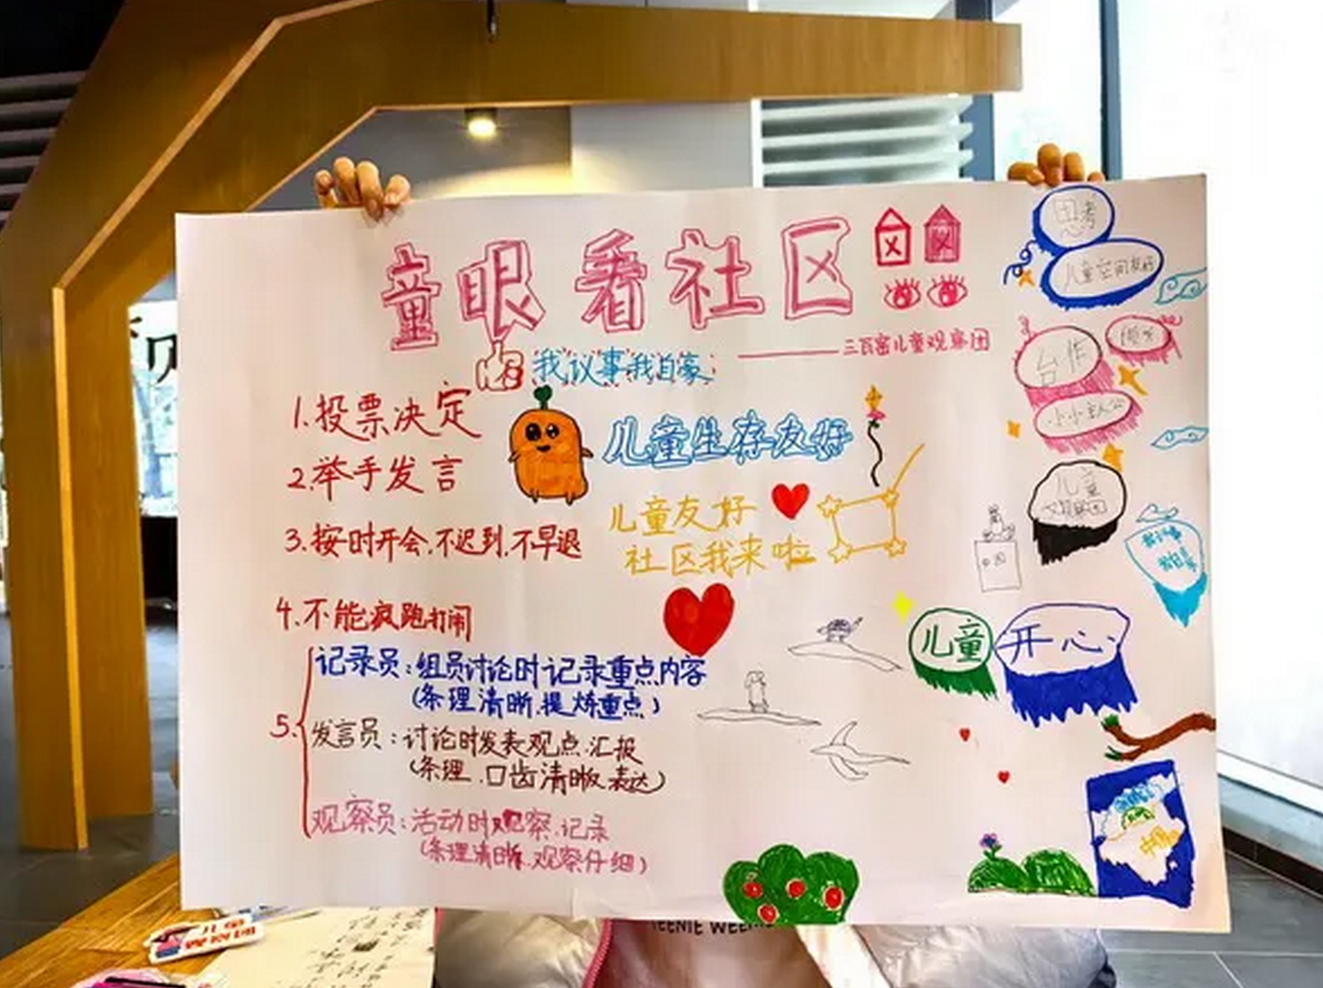 童眼看社区
三瓦窑儿童观察团
我议事我自豪
1.投票决定
2.举手发言
3.按时开会.不迟到.不早退
4.不能疯跑打闹
5.
记录员:组员讨论时记录重点内容
(条理清晰.提炼重点)
发言员:讨论时发表观点.汇报
(条理.口齿清晰表达)
观察员:活动时观察.记录
(条理清晰.观察仔细)
儿童生存友好
儿童友好
社区我来啦
思考
儿童空间友好
合作
小小主人公
儿童
观察团
中国
我议事
我自豪
儿童
开心
中国
EENIE WEE